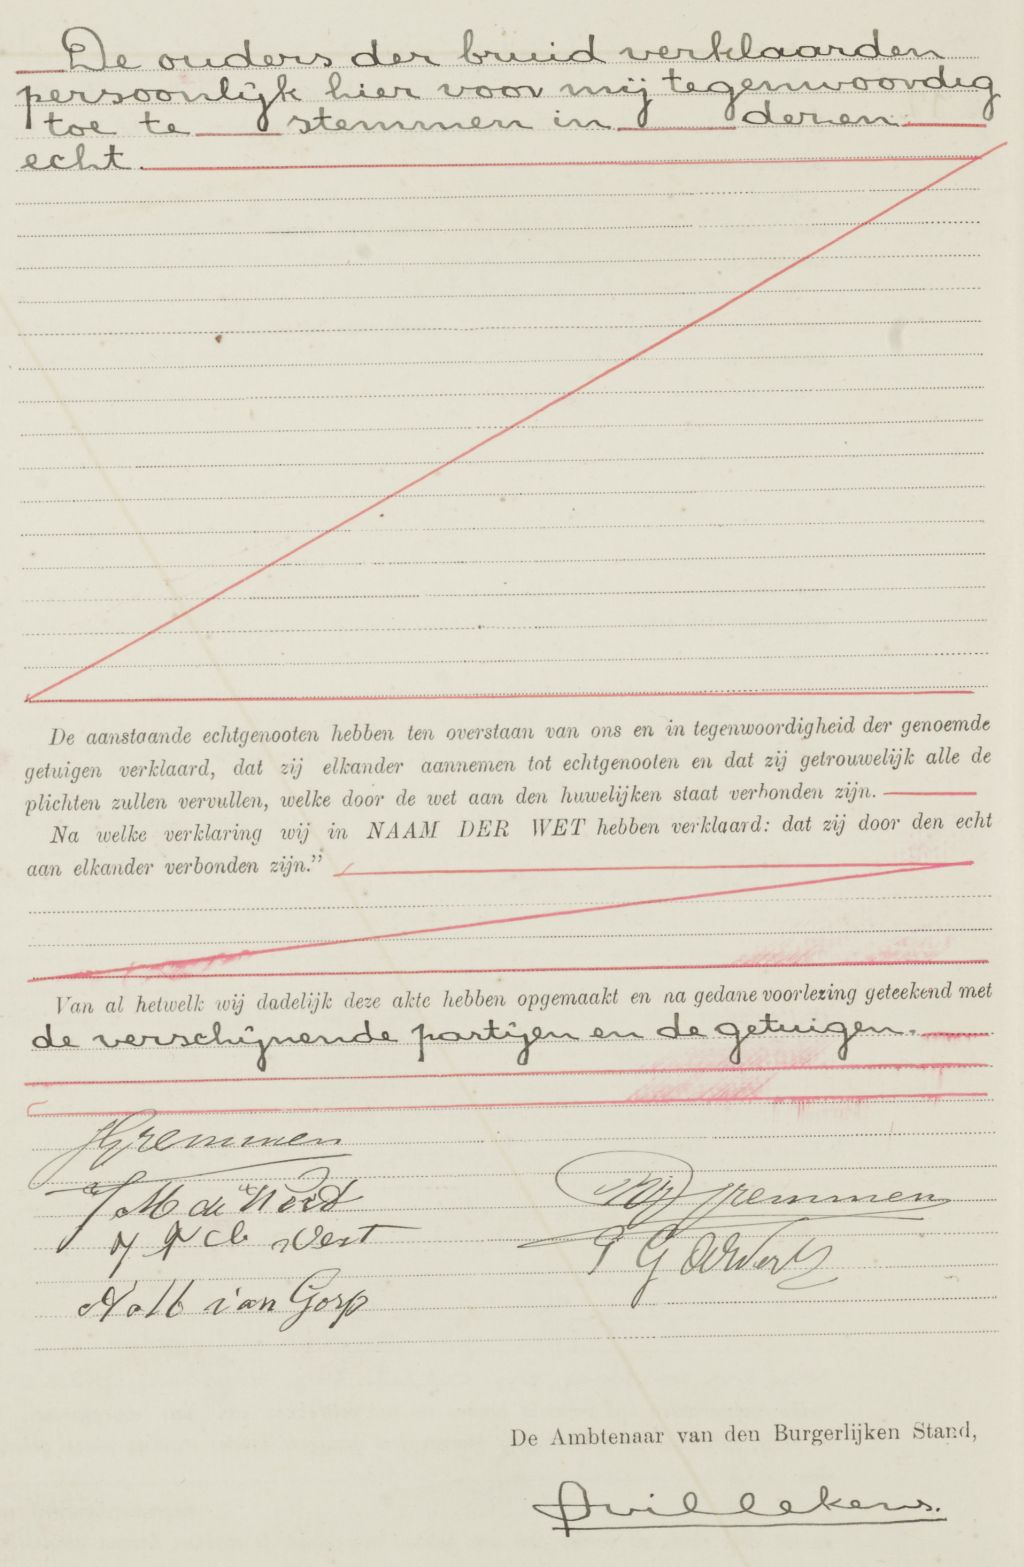 De ouders der bruid verklaarden
persoonlijk hier voor mij tegenwoordig
toe te stemmen in deren
echt.
De aanstaande echtgenooten hebben ten overstaan van ons en in tegenwoordigheid der genoemde
getuigen verklaard, dat zij elkander aannemen tot echtgenooten en dat zij getrouwelijk alle de
plichten zullen vervullen, welke door de wet aan den huwelijken staat verbonden zijn.
Na welke verklaring wij in NAAM DER WET hebben verklaard: dat zij door den echt
aan elkander verbonden zijn."
Van al hetwelk wij dadelijk deze akte hebben opgemaakt en na gedane voorlezing geteekend met
de verschijnende partijen en de getuigen.
JGremmen
M de Werd Gremmen
van Gorp
De Ambtenaar van den Burgerlijken Stand,
Willekens.